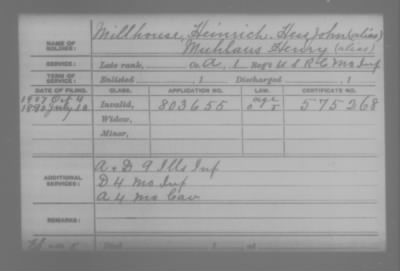 Millhouse, Heinrich. John (alias)
NAME OF SOLDIER: Muhlaus Henry (alias)
SERVICE: Late rank, Co. A, 1 Reg't U S R C Mo Inf
TERM OF SERVICE: Enlisted , 1 Discharged , 1
DATE OF FILING. CLASS. APPLICATION NO. LAW. CERTIFICATE NO.
1907 Oct 4 age
1890 July Invalid, 803655 575268
Widow,
Minor,
A + D 9 Ills Inf
ADDITIONAL SERVICES: D 4 Mo Inf
A 4 Mo Cav
REMARKS: